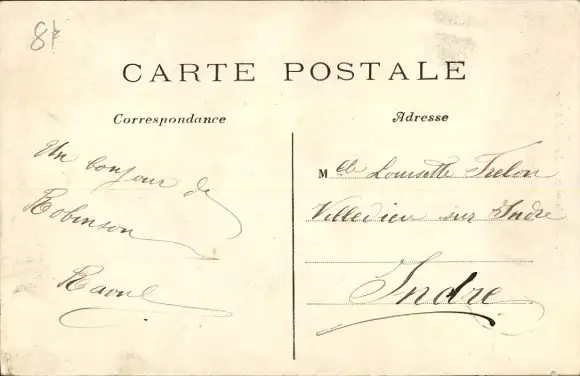 8f
CARTE POSTALE
Correspondance
Adresse
Un bonjour de
Robinson
Raoul
Melle Louisette Trelon
Villedieu sur Indre
Indre